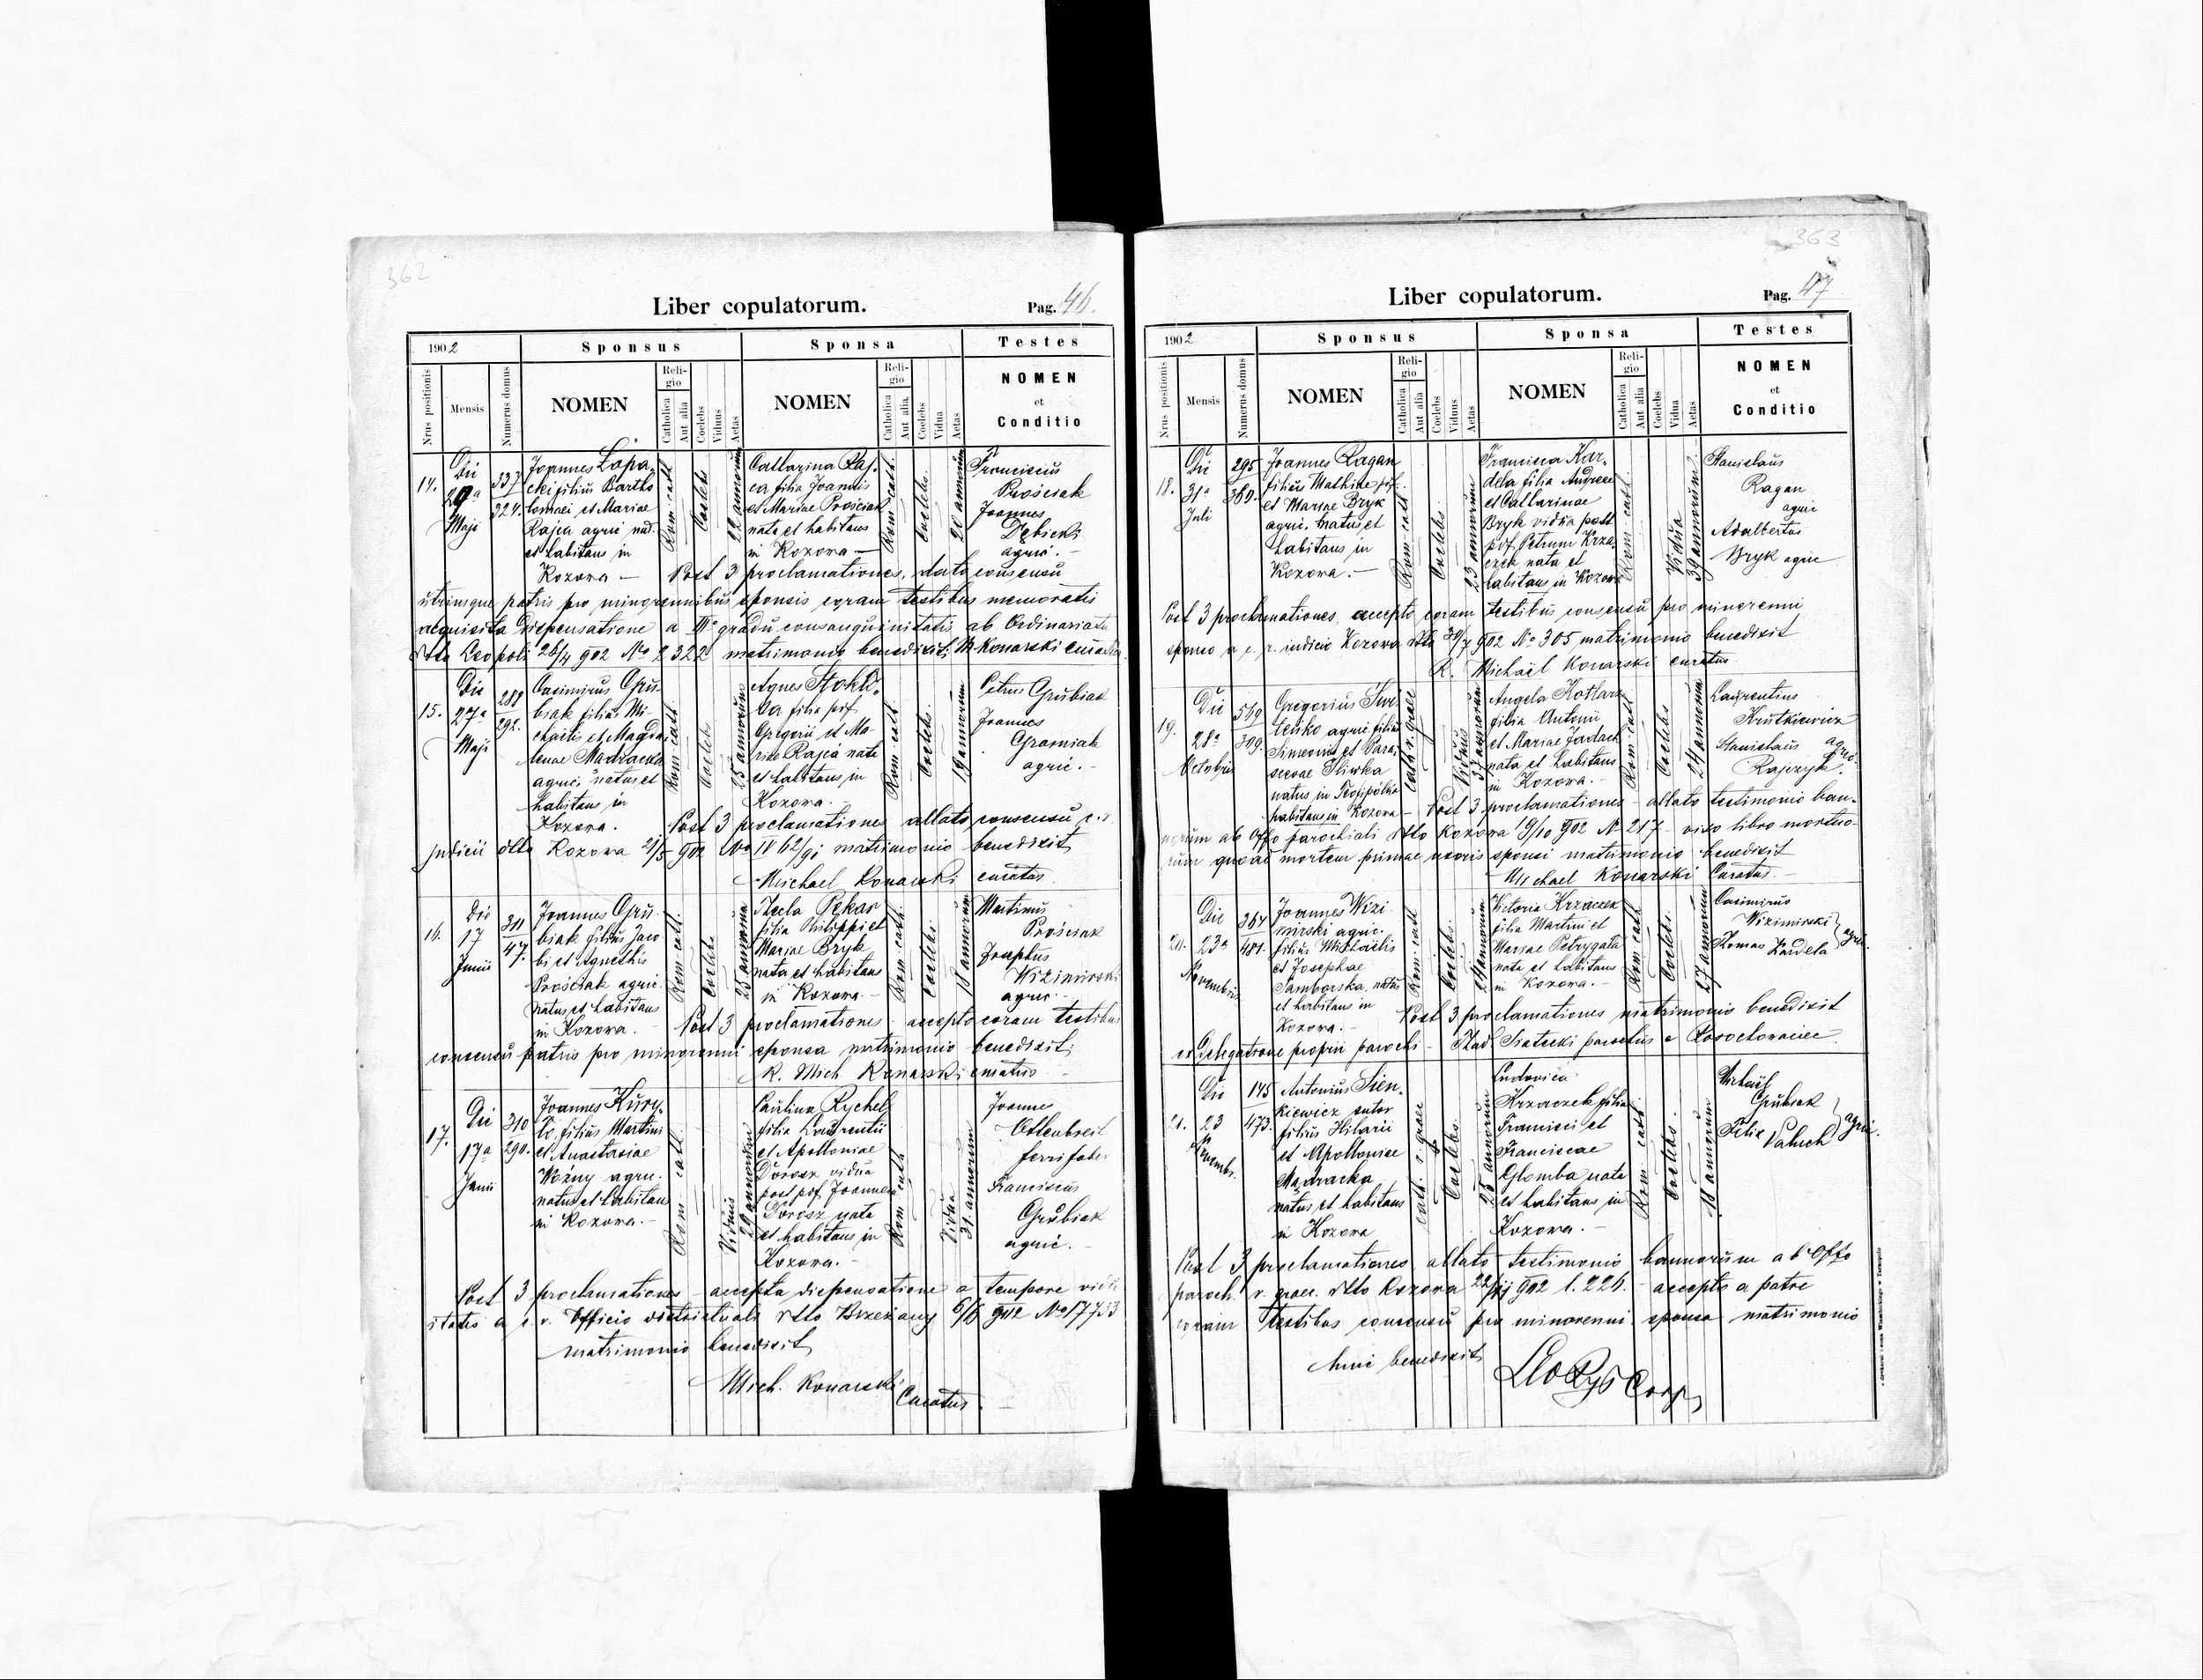 362
Liber copulatorum.
Pag. 46.
1902
Sponsus
Sponsa
Testes
Nrus positionis
Mensis
Numerus domus
NOMEN
Religio
Catholica
Aut alia
Coelebs
Viduus
Aetas
NOMEN
Religio
Catholica
Aut alia
Coelebs
Vidua
Aetas
NOMEN
et
Conditio
14.
Die
Maji
337
324.
Joannes Łopa-
cki filius Bartho
lomaei et Mariae
Rajca agric. nat.
et habitans in
Kozowa —
Rom. cath.
Coelebs
22 annorum
Catharina Raj-
ca filia Joannis
et Mariae Prościak
nata et habitans
in Kozowa —
Rom. cath.
Coelebs
20 annorum
Franciscus
Prościak
Joannes
Dębicki
agric. -
Post 3 proclamationes, dato consensu
utriusque patris pro minorennibus sponsis coram testibus memoratis
acquisita Dispensatione a III° gradu consanguinitatis ab Ordinariatu
dto Leopoli 26/4 902 No 2322 matrimonio benedixit M Konarski curatus
15.
Die
27a
Maji
288
292.
Casimirus Gru-
biak filius Mi-
chaelis et Magda
lenae Madracka
agric. natus et
habitans in
Kozowa.
Rom. cath.
Coelebs
25 annorum
Agnes Stokło-
sa filia pdf
Gregorii et Ma-
riae Rajca nata
et habitans in
Kozowa.
Rom. cath.
Coelebs.
19 annorum
Petrus Grubiak
Joannes
agric. -
Post 3 proclamationes allato consensu c.r.
judicii dtto Kozowa 21/5 902 No IV 62/91 matrimonio benedixit
Michael Konarski curatus
16.
Die
17
Junii
311
47.
Joannes Gru-
biak filius Jaco
bi et Agnethis
Prościak agric.
natus et habitans
in Kozowa. -
Rom. cath.
Coelebs
25 annorum
Thecla Pękar
filia Philippi et
Mariae Bryk
nata et habitans
in Kozowa -
Rom. cath.
Coelebs
18 annorum
Martinus
Prościak
Josephus
Wizimirski
agric. -
Post 3 proclamationes - accepto coram testibus
consensu patris pro minorenni sponsa matrimonio benedixit
R. Mich Konarski curatus
17.
Die
17a
Junii
310
290.
Joannes Kury-
ło filius Martini
et Anastasiae
Woźny agric.
natus et habitans
in Kozowa. -
Rom. cath.
Viduus
29 annorum
Paulina Rychel
filia Laurentii
et Apolloniae
Dorosz vidua
post pdf Joannem
Dorosz nata
et habitans in
Kozowa. -
Rom. cath
Vidua
31 annorum
Joannes
ferri faber
Franciscus
Grubiak
agric. -
Post 3 proclamationes - accepta dispensatione a tempore vidu
itatis a c. r. Officio districtuali dtto Brzeżany 6/6 902 No 17733
matrimonio benedixit
Mich. Konarski Curatus.
363
Liber copulatorum.
Pag. 47
1902
Sponsus
Sponsa
Testes
Nrus positionis
Mensis
Numerus domus
NOMEN
Religio
Catholica
Aut alia
Coelebs
Viduus
Aetas
NOMEN
Religio
Catholica
Aut alia
Coelebs
Vidua
Aetas
NOMEN
et
Conditio
18.
Die
31a
Juli
295
360.
Joannes Ragan
filius Mathiae pdf.
et Mariae Bryk
agric. natus et
habitans in
Kozowa. -
Rom. cath
Coelebs.
23 annorum
Francisca Kar-
dela filia Andreae
et Catharinae
Bryk vidua post
pdf. Petrum Krza-
czek nata et
habitans in Kozowa
Rom. cath.
Vidua
39 annorum
Stanislaus
Ragan
agric
Adalbertus
Bryk agric
Post 3 proclamationes, accepto coram testibus consensu pro minorenni
sponso a c. r. iudicio Kozowa dtto 30/7 902 No 305 matrimonio benedixit
R. Michaël Konarski curatus.
19.
Die
28a
Octobris
569
309.
Gregorius
agric. filius
Simeonis et Para-
scevae Śliwka
natus in Teofipólka
habitans in Kozowa
Cath. r. graec
Viduus
annorum
Angela Kotlarz
filia Antonii
et Mariae Jadach
nata et habitans
in Kozowa. -
Rom. cath
Coelebs
24 annorum
Laurentius
Krutkiewicz
Stanislaus
Rajczyk
agric.
Post 3 proclamationes - allato testimonio ban-
norum ab Offo parochiali dtto Kozowa 19/10 902 N 217 - viso libro mortuo-
rum quoad mortem primae uxoris sponsi matrimonio benedixit
Michael Konarski Curatus -
20.
Die
23a
Novembris
367
401.
Joannes Wizi-
mirski agric.
filius Michaelis
et Josephae
Samborska, natus
et habitans in
Kozowa. -
Rom. cath
Coelebs
annorum
Victoria Krzaczek
filia Martini et
Mariae Petrygała
nata et habitans
in Kozowa. -
Rom. cath
Coelebs.
27 annorum
Casimirus
Wizimirski
Thomas Kardela
agric.
Post 3 proclamationes matrimonio benedixit
ex Delegatione proprii parochi - Thad. Siatecki parochus e
21.
Die
23
Novembr.
145
473.
Antonius Sien-
kiewicz sutor
filius Hilarii
et Apolloniae
Mądracka
natus et habitans
in Kozowa
Cath. r. graec
Coelebs.
25 annorum
Ludovica
Krzaczek filia
Francisci et
Franciscae
Glomba nata
et habitans in
Kozowa. -
Rom. cath
Coelebs.
18 annorum
Michaël
Grubiak
Felix
Paluch
agric.
Post 3 proclamationes allato testimonio bannorum ab Offo
paroch. r. graec. dtto Kozowa 22/11 902 l. 226. - accepto a patre
coram testibus consensu pro minorenni sponsa matrimonio
huic benedixit